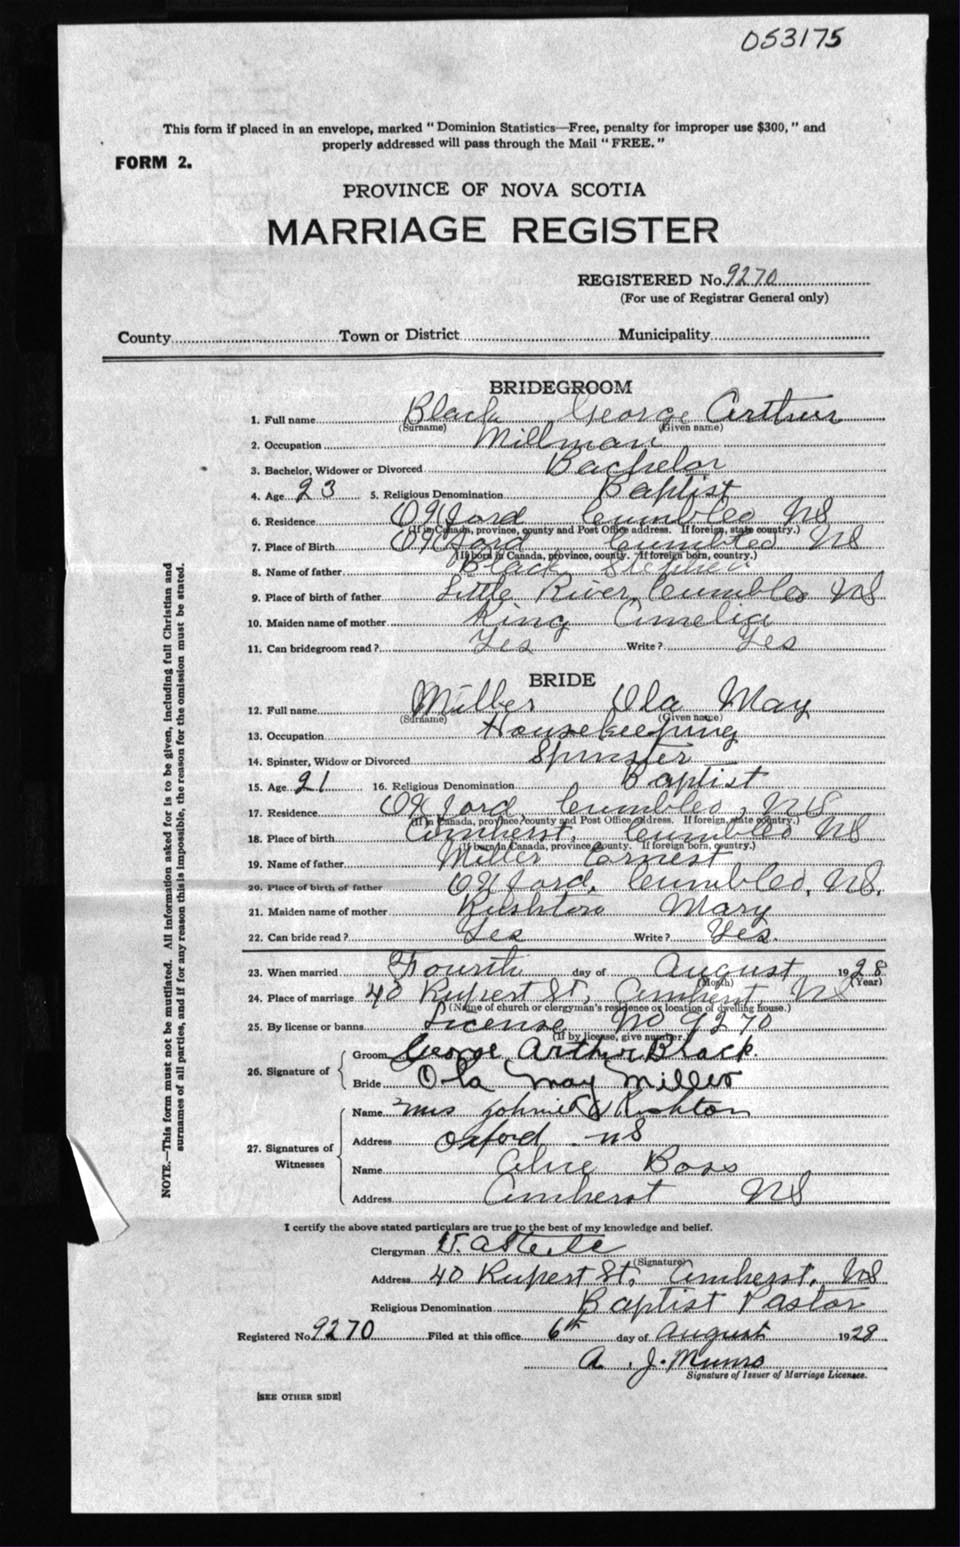 053175
This form if placed in an envelope, marked "Dominion Statistics—Free, penalty for improper use $300," and
properly addressed will pass through the Mail "FREE."
FORM 2.
PROVINCE OF NOVA SCOTIA
MARRIAGE REGISTER
REGISTERED No. 9270
(For use of Registrar General only)
County Town or District Municipality
BRIDEGROOM
1. Full name Black George Arthur
(Surname) (Given name)
2. Occupation Millman
3. Bachelor, Widower or Divorced Bachelor
4. Age 23 5. Religious Denomination Baptist
6. Residence Oxford Cumb Co NS
(If in Canada, province, county and Post Office address. If foreign, state country.)
7. Place of Birth Oxford Cumb Co NS
(If born in Canada, province, county. If foreign born, country.)
8. Name of father Black Stephen
9. Place of birth of father Little River, Cumb Co NS
10. Maiden name of mother King Amelia
11. Can bridegroom read? Yes Write? Yes
BRIDE
12. Full name Miller Ola May
(Surname) (Given name)
13. Occupation Housekeeping
14. Spinster, Widow or Divorced Spinster
15. Age 21 16. Religious Denomination Baptist
17. Residence Oxford Cumb Co, NS
(If in Canada, province, county and Post Office address. If foreign, state country.)
18. Place of birth Amherst, Cumb Co NS
(If born in Canada, province, county. If foreign born, country.)
19. Name of father Miller Ernest
20. Place of birth of father Oxford, Cumb Co, NS.
21. Maiden name of mother Rushton Mary
22. Can bride read? Yes Write? Yes.
23. When married Fourth day of August 1928
(Month) (Year)
24. Place of marriage 40 Rupert St, Amherst, NS
(Name of church or clergyman's residence or location of dwelling house.)
25. By license or banns License No 9270
(If by license, give number.)
26. Signature of Groom George Arthur Black.
Bride Ola May Miller
27. Signatures of Witnesses
Name Mrs Rushton
Address Oxford NS
Name Alice Boss
Address Amherst NS
I certify the above stated particulars are true to the best of my knowledge and belief.
Clergyman A Steele
(Signature)
Address 40 Rupert St, Amherst, NS
Religious Denomination Baptist Pastor
Registered No. 9270 Filed at this office 6th day of August 1928
A. J. Munro
Signature of Issuer of Marriage Licenses.
[SEE OTHER SIDE]
NOTE.—This form must not be mutilated. All information asked for is to be given, including full Christian and
surnames of all parties, and if for any reason this is impossible, the reason for the omission must be stated.